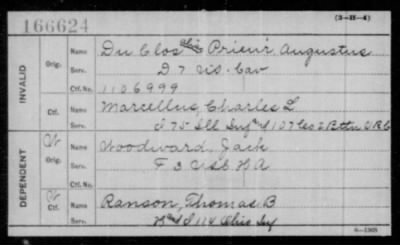 166624
(3-H-4)
INVALID
Orig.
Name Du Clos alias Prieur, Augustus
Serv. D 7 Wis. Cav
Ctf. No. 1106999
Ctf.
Name Marcellus, Charles L
Serv. I 75 Ill Inf & 107 Co 2 Battn V.R.C
DEPENDENT
Orig.
Name Woodward, Jack
Serv. F 3 USC HA
Ctf. No.
Ctf.
Name Ranson, Thomas B
Serv. & I 114 Ohio Inf